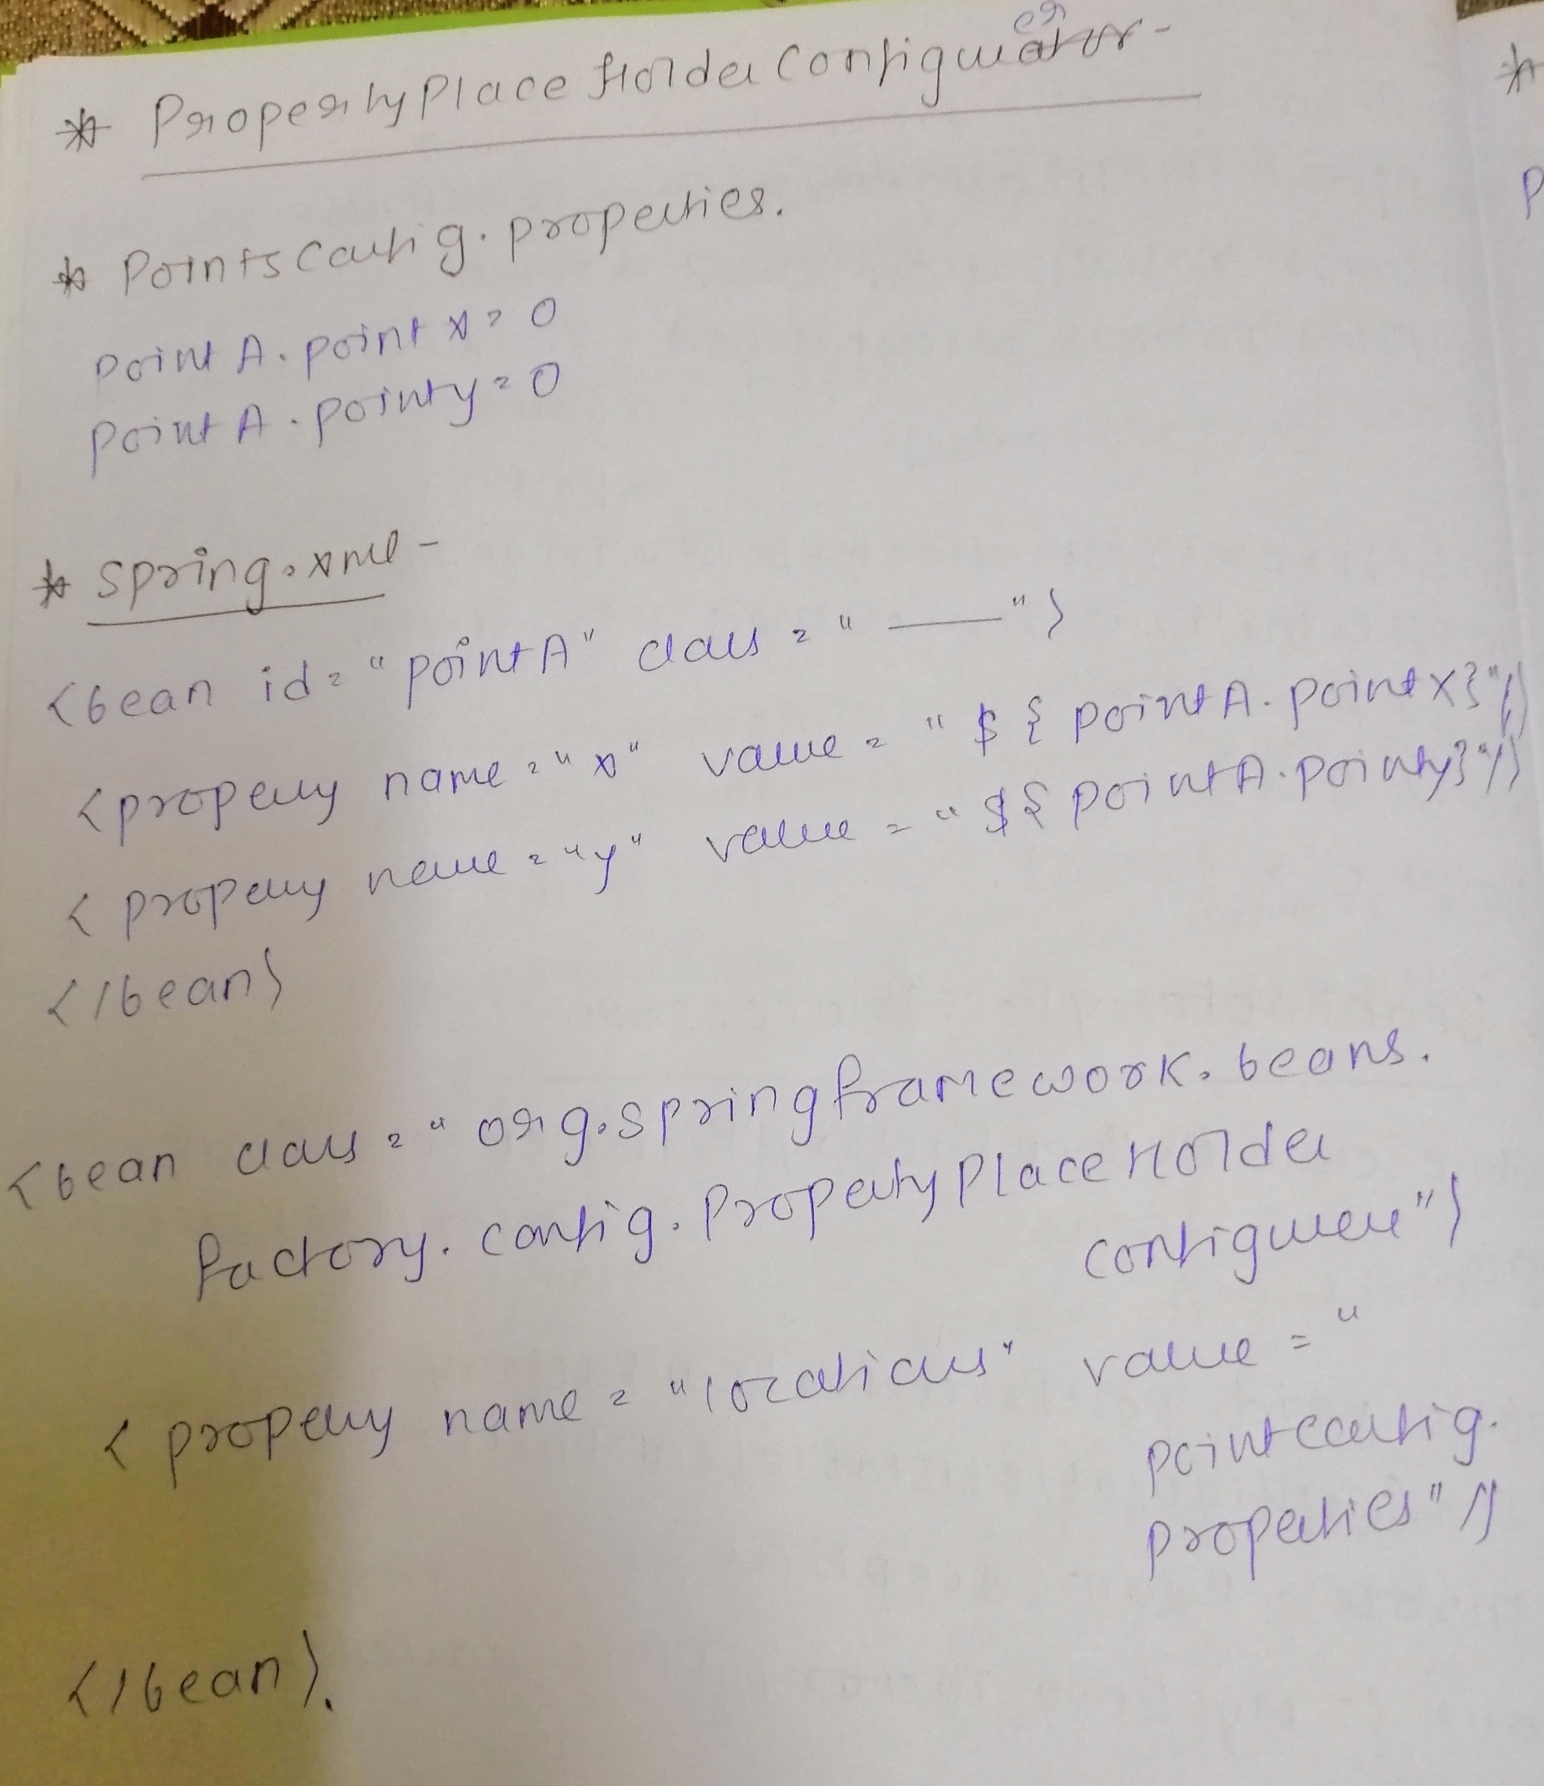 * PropertyPlaceHolderConfigurator-
er
* Pointsconfig.properties.
pointA.pointx=0
pointA.pointy=0
* spring.xml-
<bean id="pointA" class="——">
<property name="x" value="${pointA.pointx}"/>
<property name="y" value="${pointA.pointy}"/>
</bean>
<bean class="org.springframework.beans.
factory.config.PropertyPlaceHolder
configurer">
<property name="locations" value="
pointconfig.
properties"/>
</bean>.
*
P